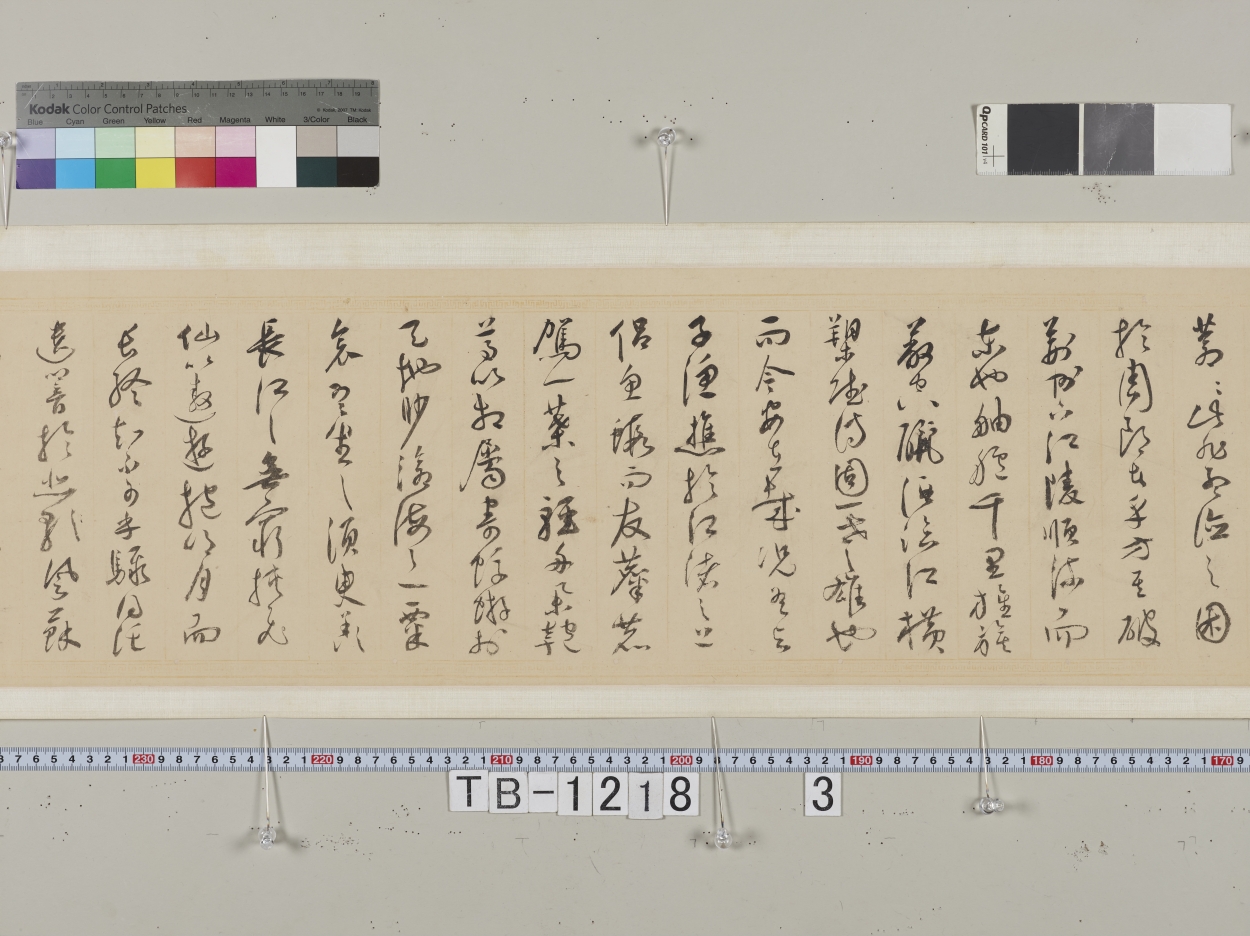 蒼蒼此非孟德之困
於周郎者乎方其破
荊州下江陵順流而
東也舳艫千里旌旗
蔽空釃酒臨江橫
槊賦詩固一世之雄也
而今安在哉況吾與
子漁樵於江渚之上
侶魚蝦而友麋鹿
駕一葉之輕舟舉匏
尊以相屬寄蜉蝣於
天地渺滄海之一粟
哀吾生之須臾羨
長江之無窮挾飛
仙以遨遊抱明月而
長終知不可乎驟得託
遺響於悲風蘇
Kodak Color Control Patches
Blue Cyan Green Yellow Red Magenta White 3/Color Black
QPCARD 101
TB-1218 3